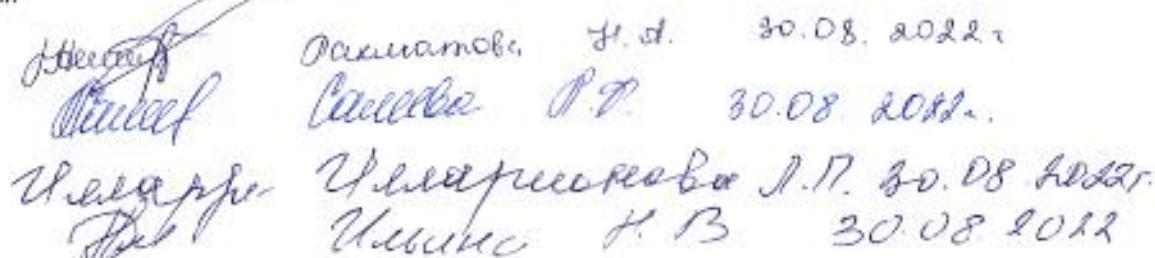 Рахматова Н.А. 30.08.2022г
Салеева Р.Р. 30.08.2022г.
Илларионова Л.П. 30.08.2022г.
Ильина Н.В 30.08.2022